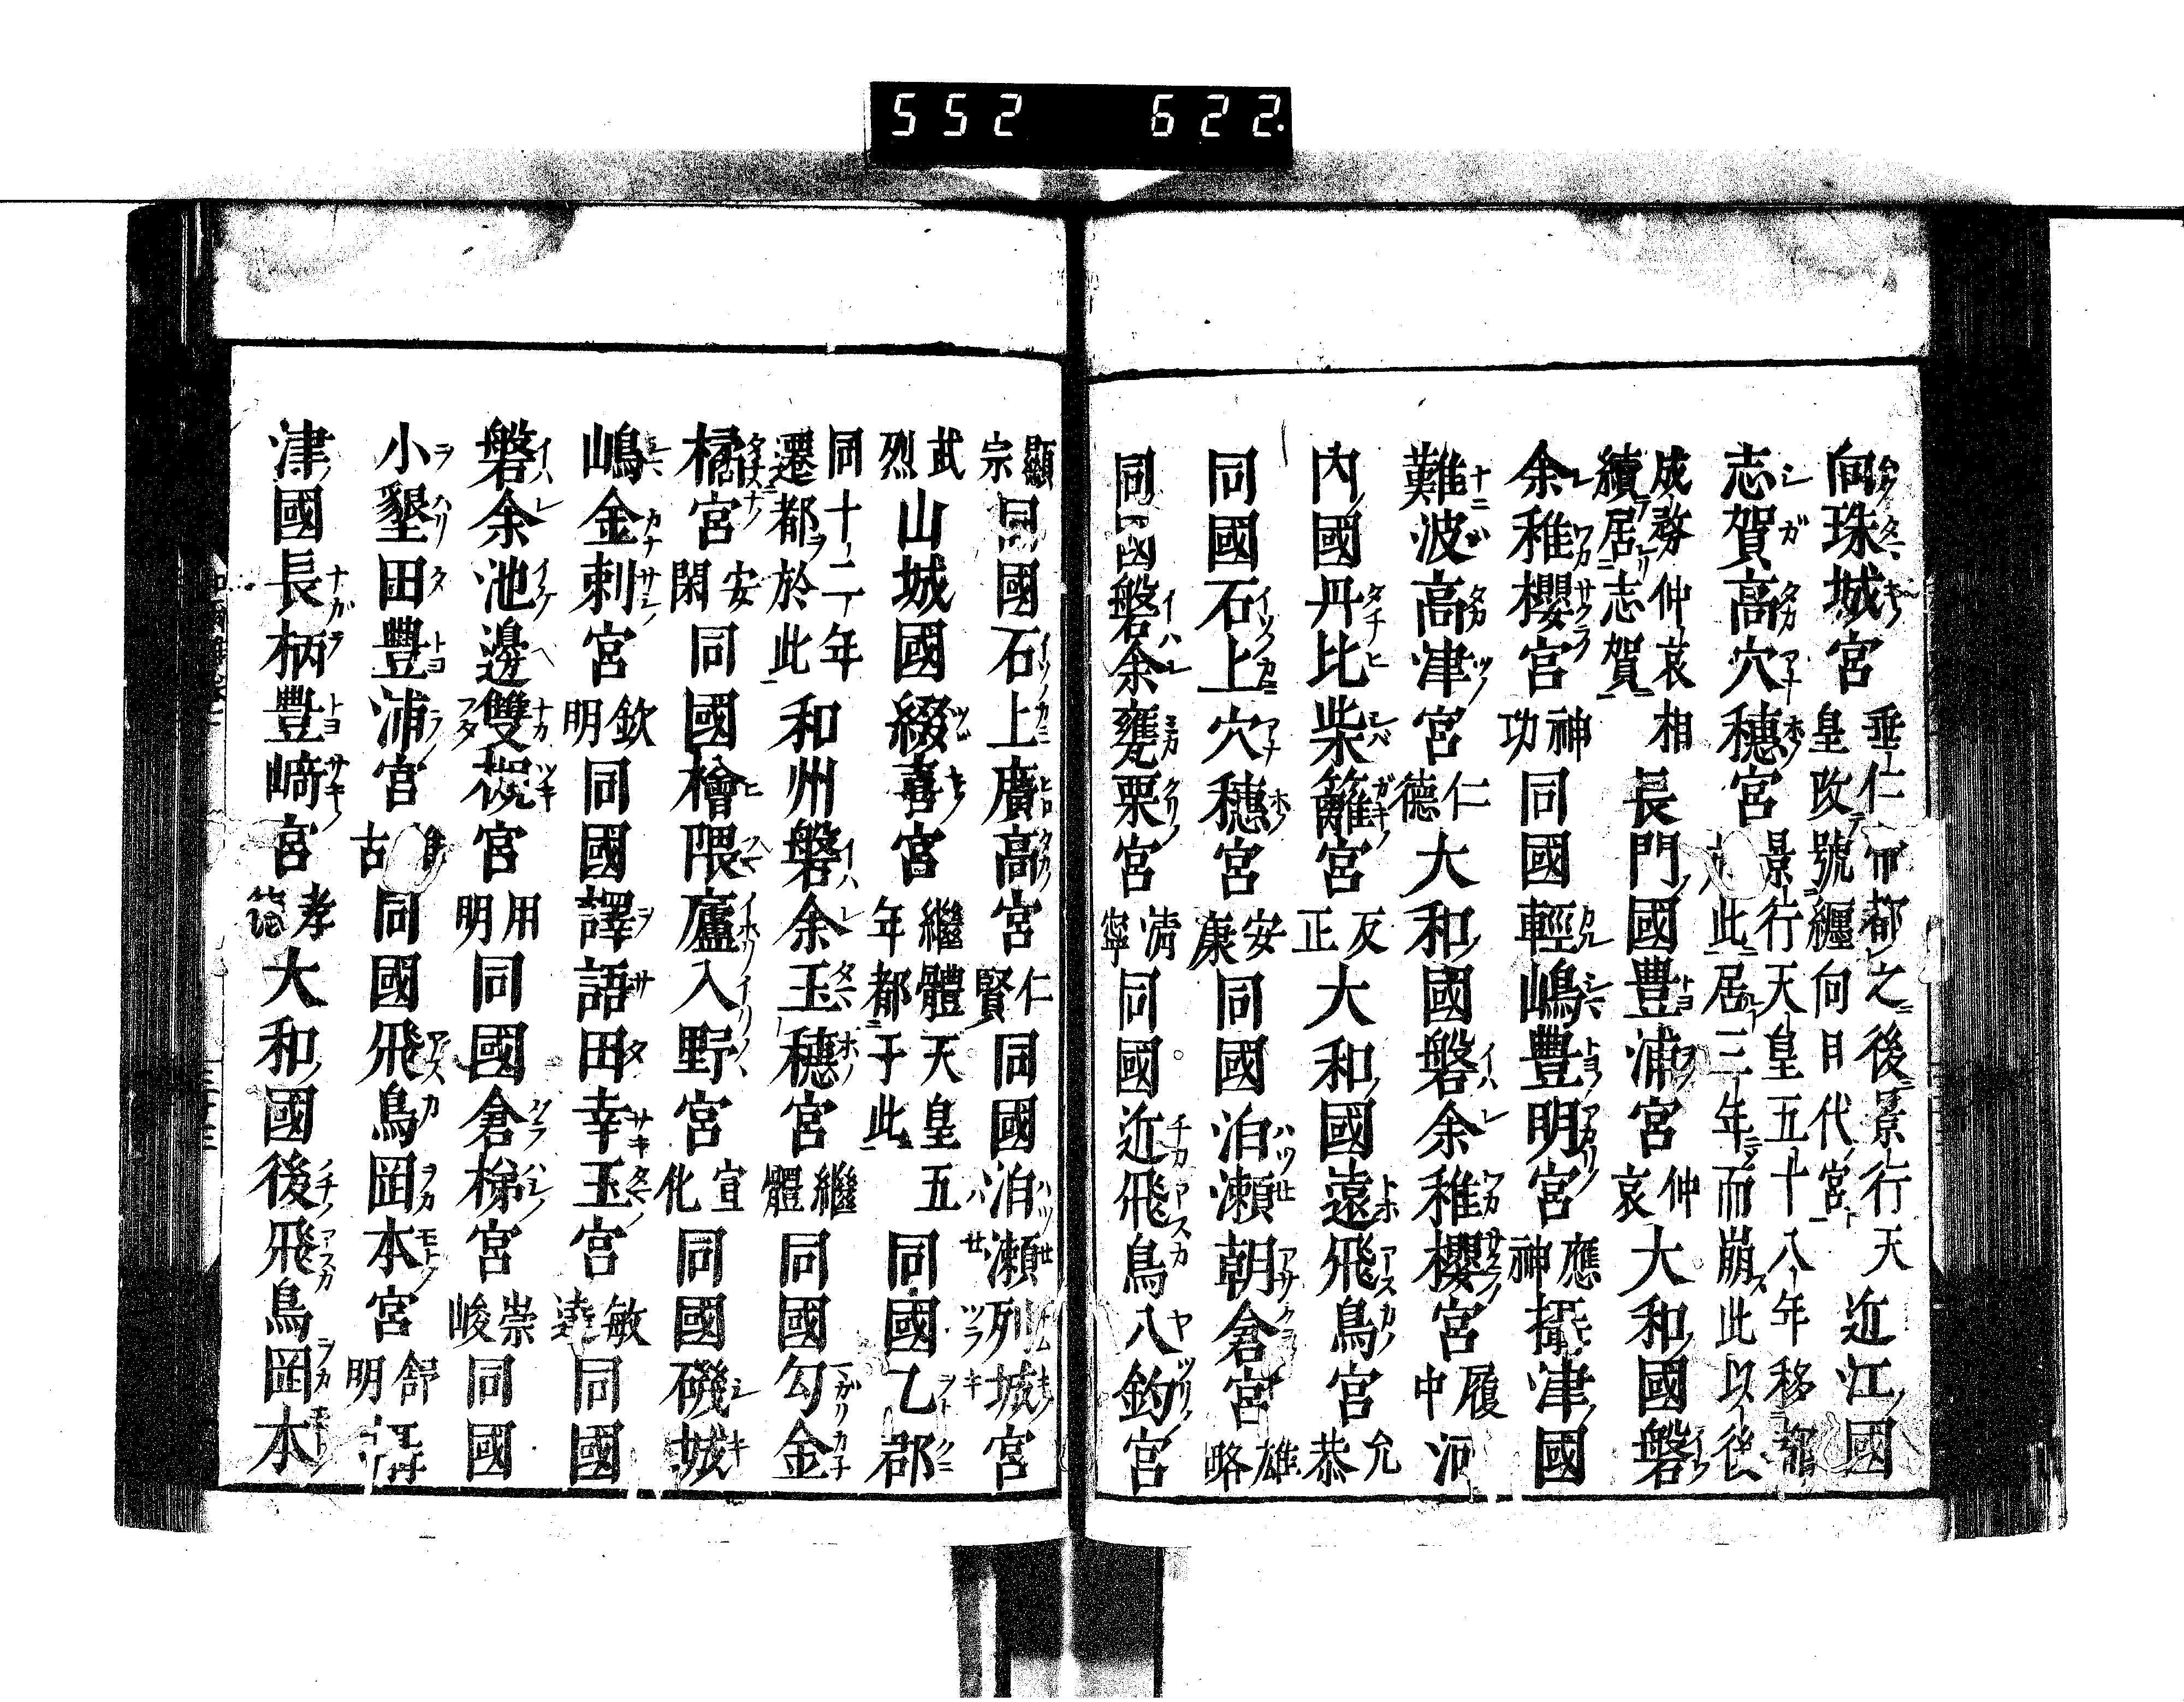 552 622.
向珠城宮 垂仁帝都之後景行天皇改號纏向日代宮 近江國
志賀高穴穗宮 景行天皇五十八年移都此居三年而崩此以後
成務仲哀相續居志賀 長門國豊浦宮 仲哀 大和國磐
余稚櫻宮 神功 同國輕嶋豊明宮 應神 攝津國
難波高津宮 仁德 大和國磐余稚櫻宮 履中 河
內國丹比柴籬宮 反正 大和國遠飛鳥宮 允恭
同國石上穴穗宮 安康 同國泊瀬朝倉宮 雄略
同國磐余甕栗宮 淸寧 同國近飛鳥八釣宮
顯宗 同國石上廣高宮 仁賢 同國泊瀬列城宮
武烈 山城國綴喜宮 繼體天皇五年都于此 同國乙郡
同十二年遷都於此 和州磐余玉穗宮 繼體 同國勾金
橘宮 安閑 同國檜隈廬入野宮 宣化 同國磯城
嶋金刺宮 欽明 同國譯語田幸玉宮 敏達 同國
磐余池邊雙槻宮 用明 同國倉梯宮 崇峻 同國
小墾田豊浦宮 古 同國飛鳥岡本宮 舒明
津國長柄豊﨑宮 孝德 大和國後飛鳥岡本